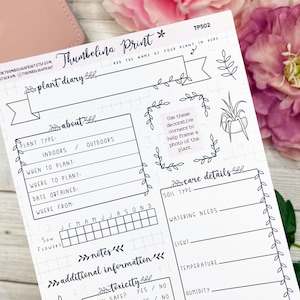 Thumbelina Print
TPS02
ADD THE NAME OF YOUR PLANT IN HERE
plant diary
about
PLANT TYPE:
INDOORS / OUTDOORS
WHEN TO PLANT:
WHERE TO PLANT:
DATE OBTAINED:
WHERE FROM:
Use these
decorative
corners to
help frame a
photo of the
plant.
J F M A M J J A S O N D
Sow
Flowers
notes
additional information
toxicity
SAFE? YES / NO
YES / NO
care details
SOIL TYPE
WATERING NEEDS
LIGHT
TEMPERATURE
HUMIDITY